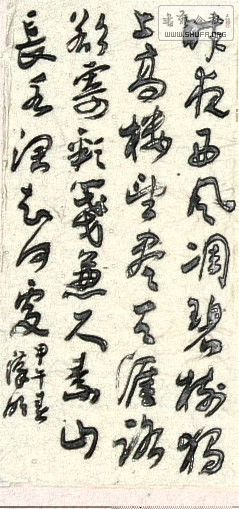 昨夜西风调碧树独
上高楼望尽天涯路
欲寄彩笺兼尺素山
长水阔知何处
甲午春
WWW.SHUFA.ORG